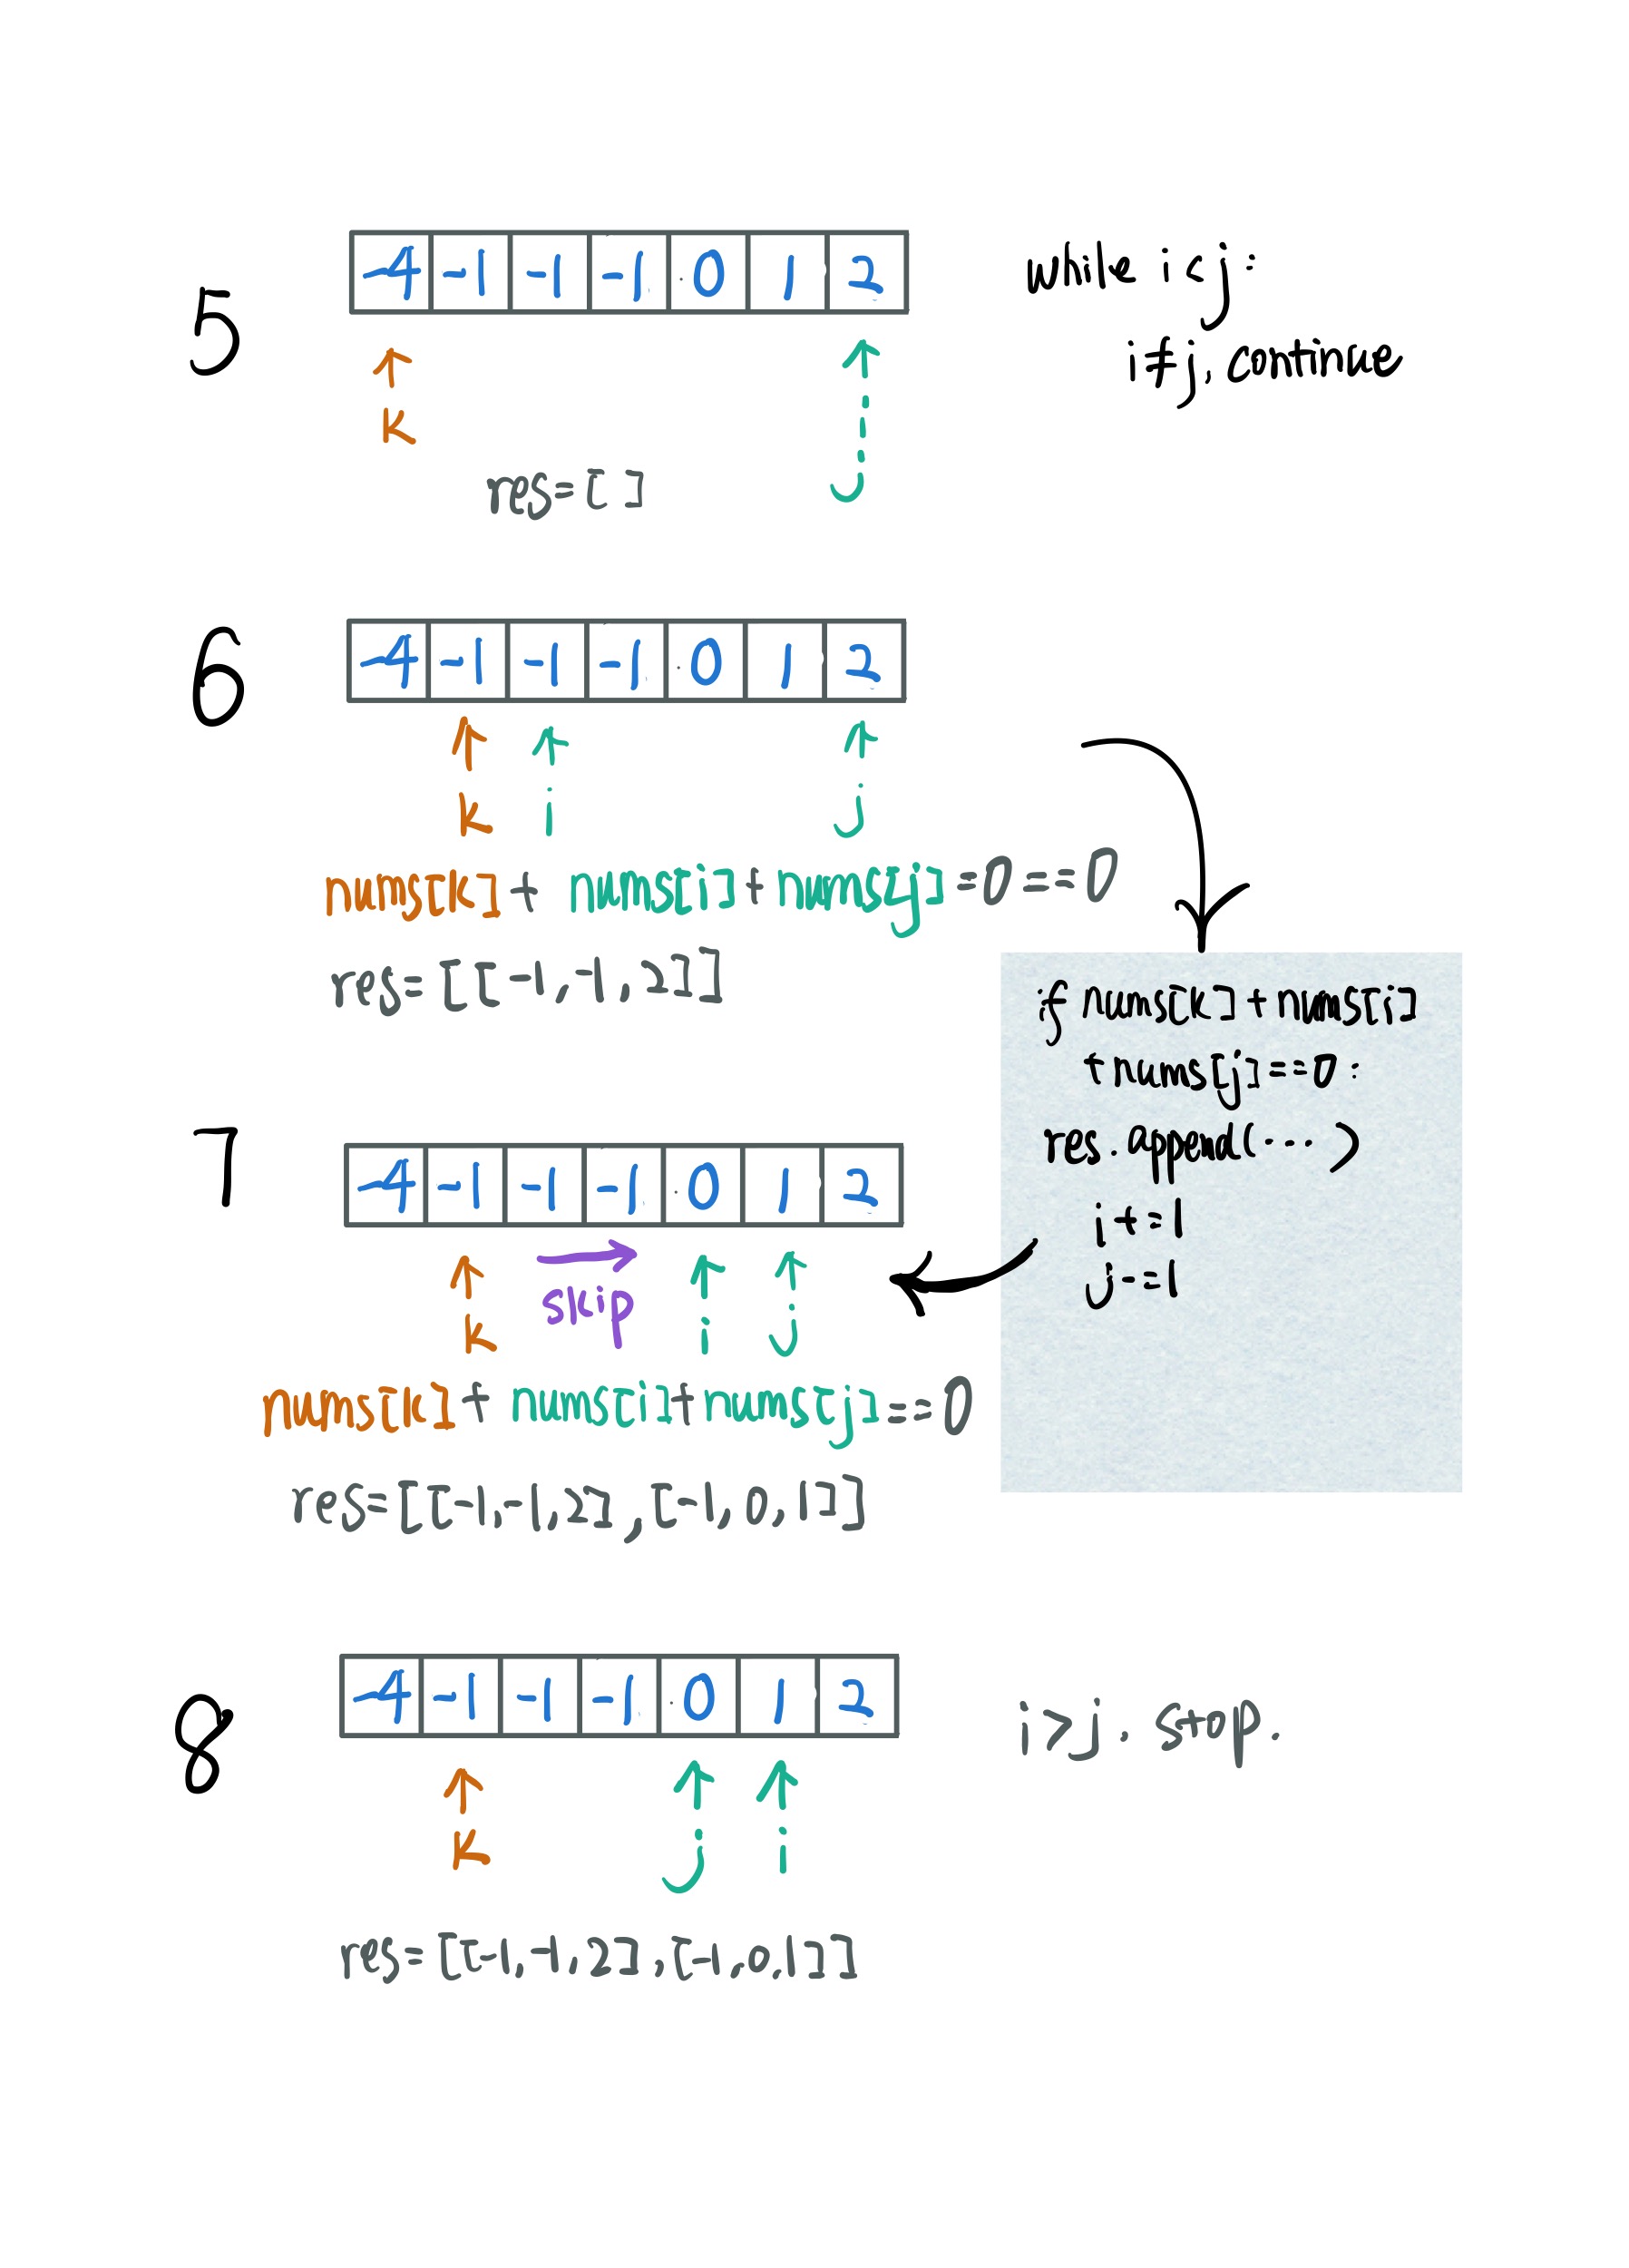 5
-4 -1 -1 -1 0 1 2
while i<j:
i≠j, continue
k
j
res=[ ]
6
-4 -1 -1 -1 0 1 2
k i j
nums[k]+ nums[i]+nums[j]=0==0
res=[[-1,-1,2]]
if nums[k]+nums[i]
+nums[j]==0:
res.append(...)
i+=1
j-=1
7
-4 -1 -1 -1 0 1 2
skip
k i j
nums[k]+ nums[i]+nums[j]==0
res=[[-1,-1,2],[-1,0,1]]
8
-4 -1 -1 -1 0 1 2
i>j. stop.
k j i
res=[[-1,-1,2],[-1,0,1]]